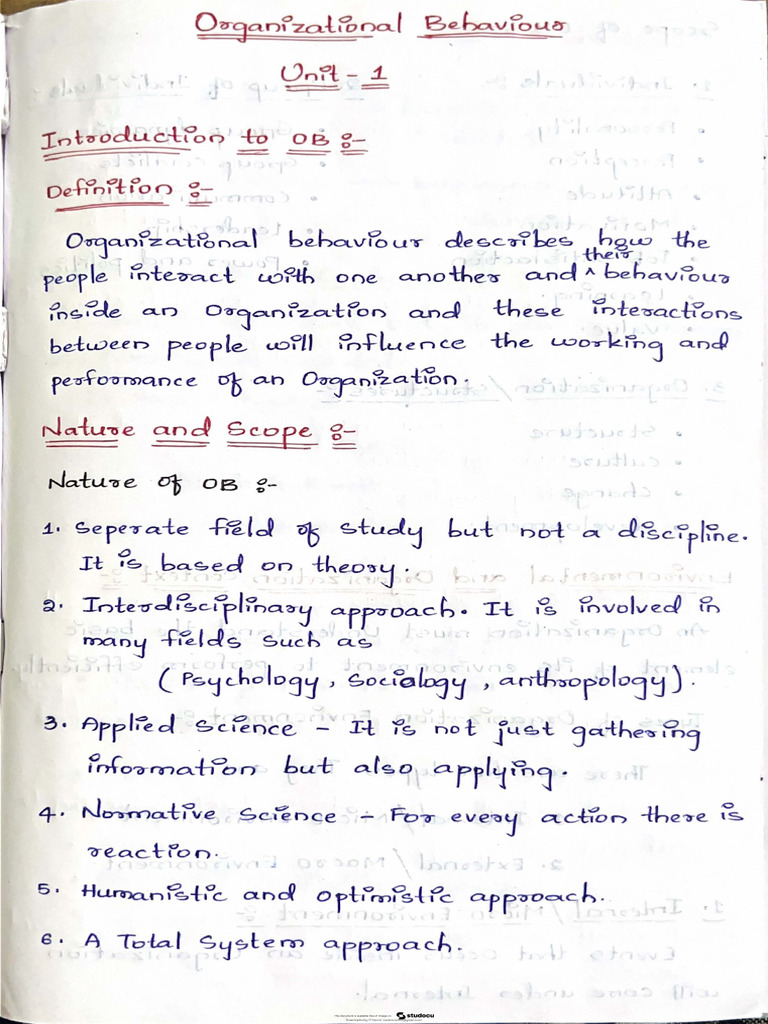 Organizational Behaviour
Unit - 1
Introduction to OB :-
Definition :-
Organizational behaviour describes how the
people interact with one another and ^ their behaviour
inside an Organization and these interactions
between people will influence the working and
performance of an Organization.
Nature and Scope :-
Nature of OB :-
1. Seperate field of study but not a discipline.
It is based on theory.
2. Interdisciplinary approach. It is involved in
many fields such as
(Psychology, Sociology, anthropology).
3. Applied Science - It is not just gathering
information but also applying.
4. Normative Science :- For every action there is
reaction.
5. Humanistic and optimistic approach.
6. A Total System approach.
studocu